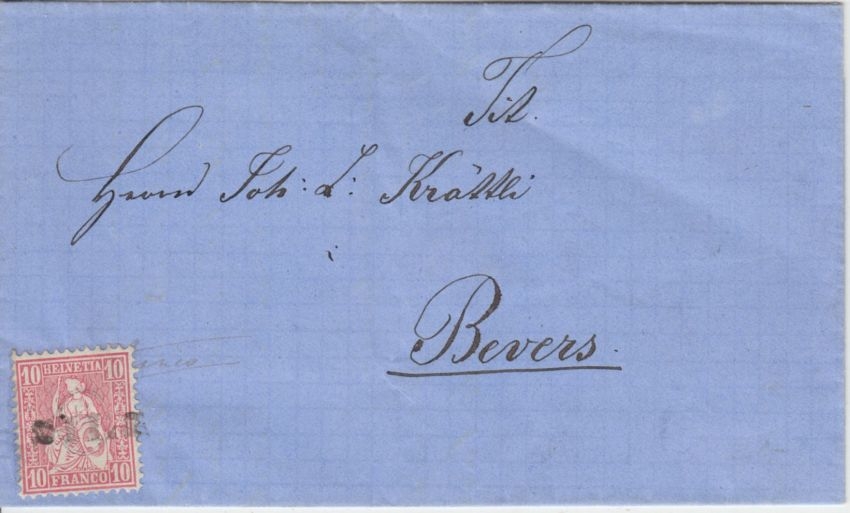 Tit.
Herrn Joh: L: Krättli
Bevers.
franco
10 HELVETIA 10
10 FRANCO 10